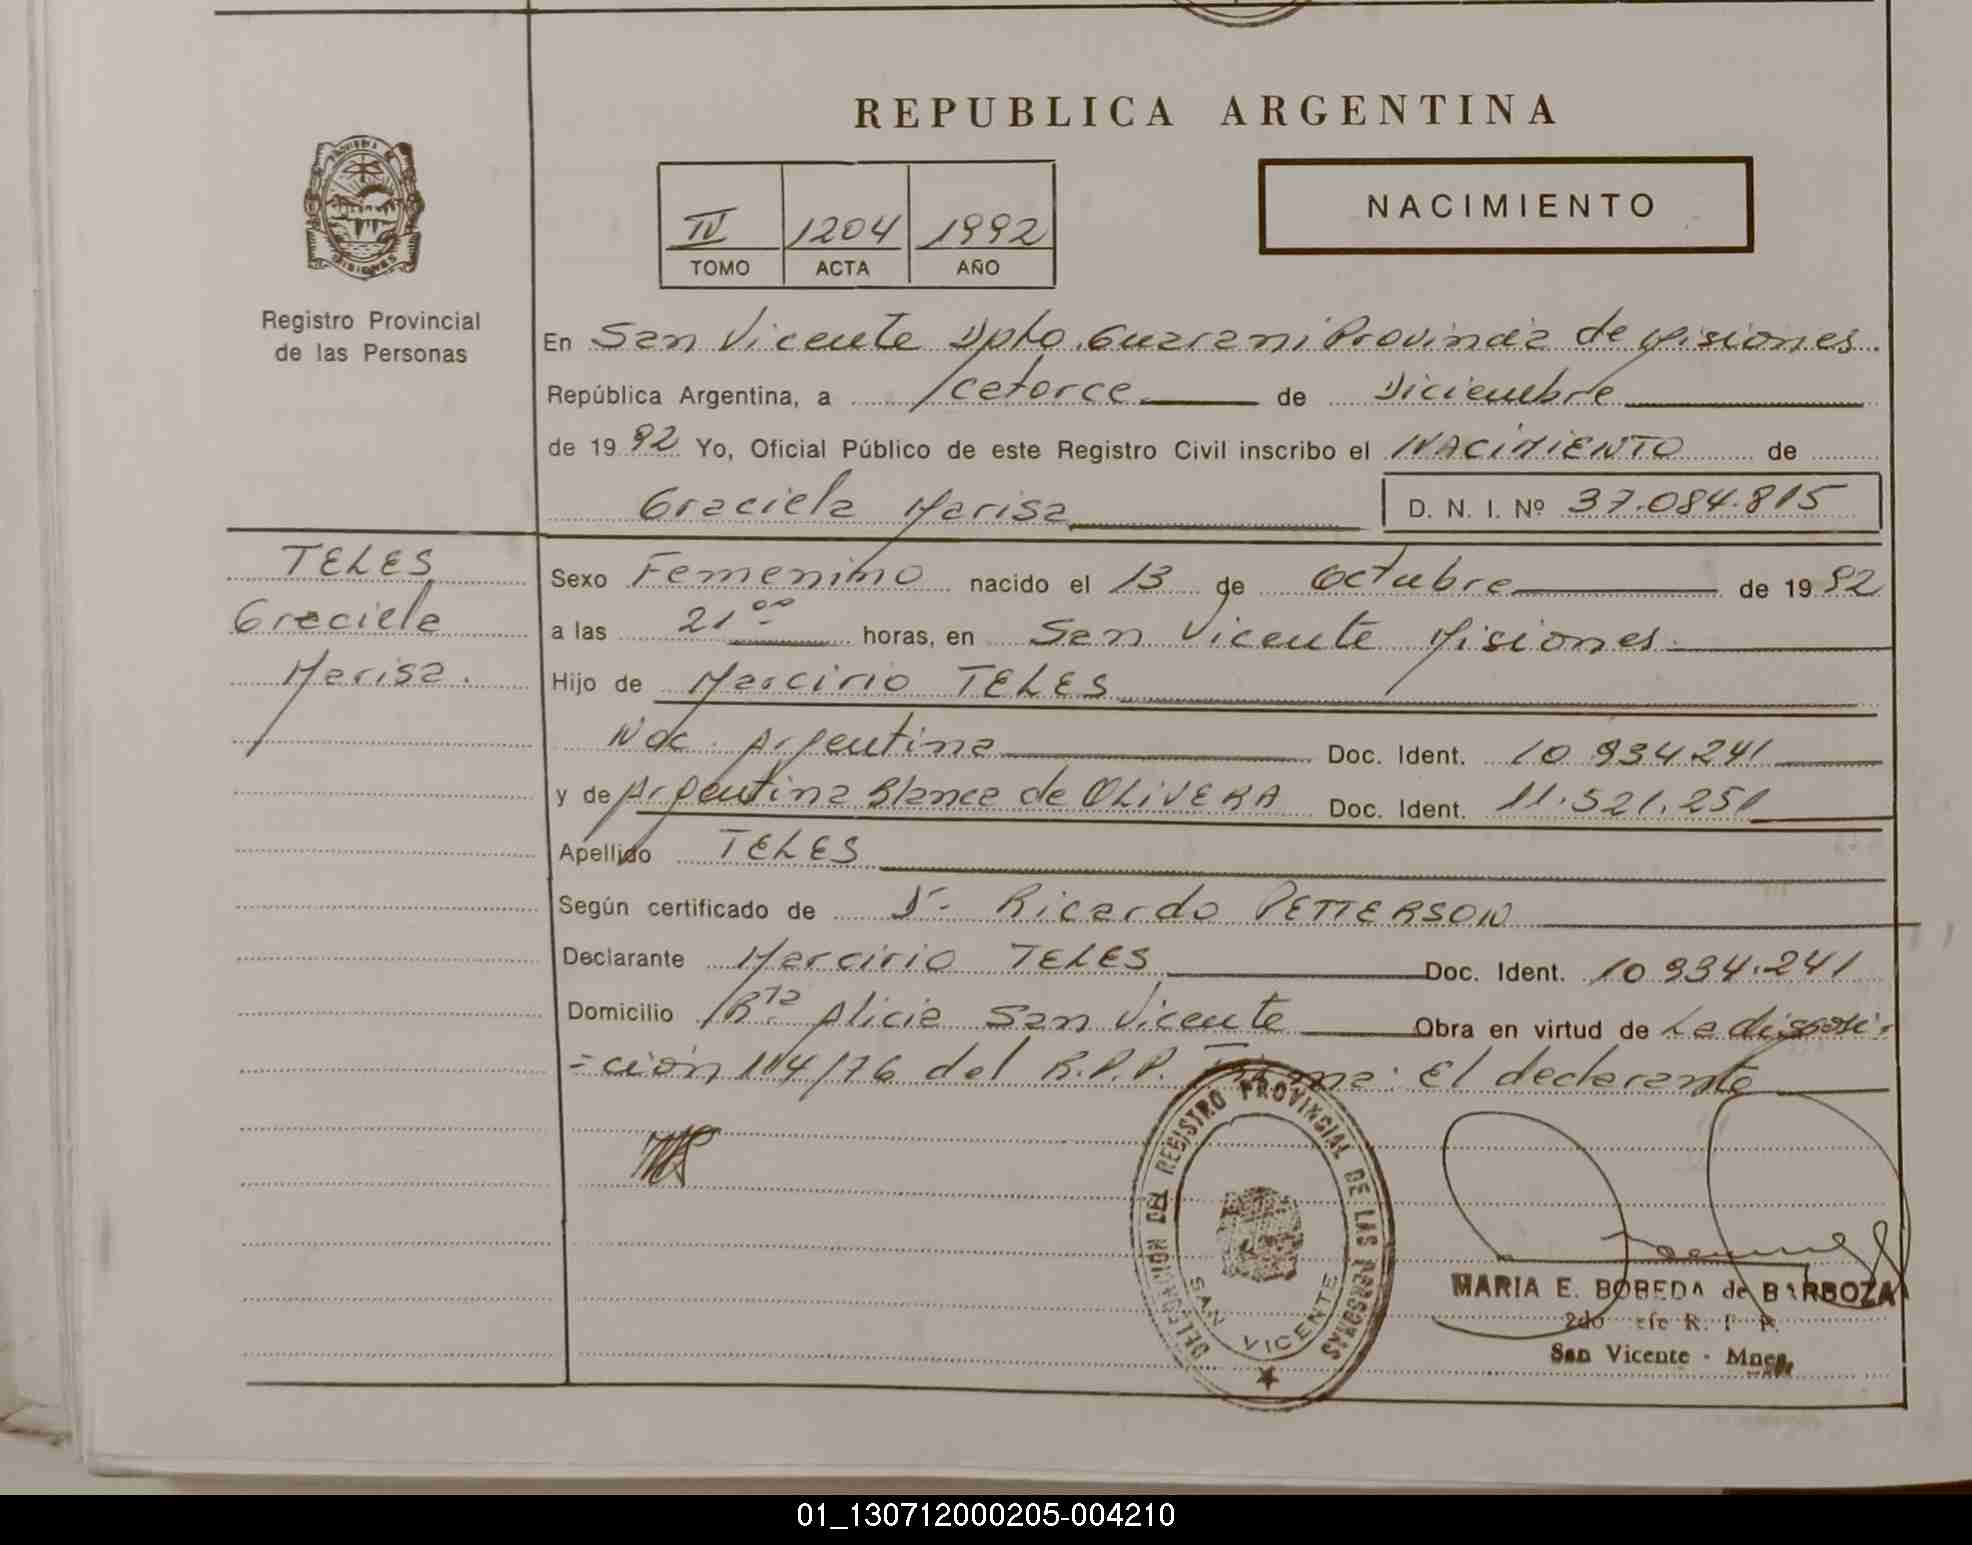 REPUBLICA ARGENTINA
NACIMIENTO
IV 1204 1992
TOMO ACTA AÑO
Registro Provincial
de las Personas
En San Vicente Dpto. Guarani Provincia de Misiones.
República Argentina, a catorce de Diciembre
de 19 92 Yo, Oficial Público de este Registro Civil inscribo el NACIMIENTO de
Graciela Marisa D. N. I. Nº 37.084.815
TELES
Graciela
Marisa.
Sexo Femenino nacido el 13 de Octubre de 19 92
a las 21 00 horas, en San Vicente Misiones.
Hijo de Marcirio TELES
Nac. Argentina Doc. Ident. 10.934.241
y de Argentina Blanca de OLIVERA Doc. Ident. 11.521.251
Apellido TELES
Según certificado de Dr. Ricardo PETTERSON
Declarante Marcirio TELES Doc. Ident. 10.934.241
Domicilio Rta. Alicia San Vicente Obra en virtud de La disposi-
-ción 114/76 del R.P.P. Firma: El declarante
DELEGACION DEL REGISTRO PROVINCIAL DE LAS PERSONAS
SAN VICENTE
MARIA E. BOBEDA de BARBOZA
2do
San Vicente - Mnes.
01_130712000205-004210